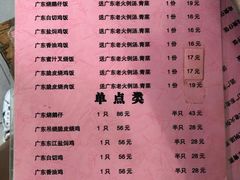 广东烧鹅仔饭 送广东老火例汤.青菜 1份 19元
广东白切鸡饭 送广东老火例汤.青菜 1份 16元
广东盐焗鸡饭 送广东老火例汤.青菜 1份 16元
广东香油鸡饭 送广东老火例汤.青菜 1份 16元
广东蜜汁叉烧饭 送广东老火例汤.青菜 1份 17元
广东脆皮烧鸡饭 送广东老火例汤.青菜 1份 17元
广东脆皮烧肉饭 送广东老火例汤.青菜 1份 19元
单点类
广东烧鹅仔 1只 86元 半只 43元
广东吊烧脆皮烧鸡 1只 56元 半只 28元
广东东江盐焗鸡 1只 56元 半只 28元
广东白切鸡 1只 56元 半只 28元
广东香油鸡 1只 56元 半只 28元